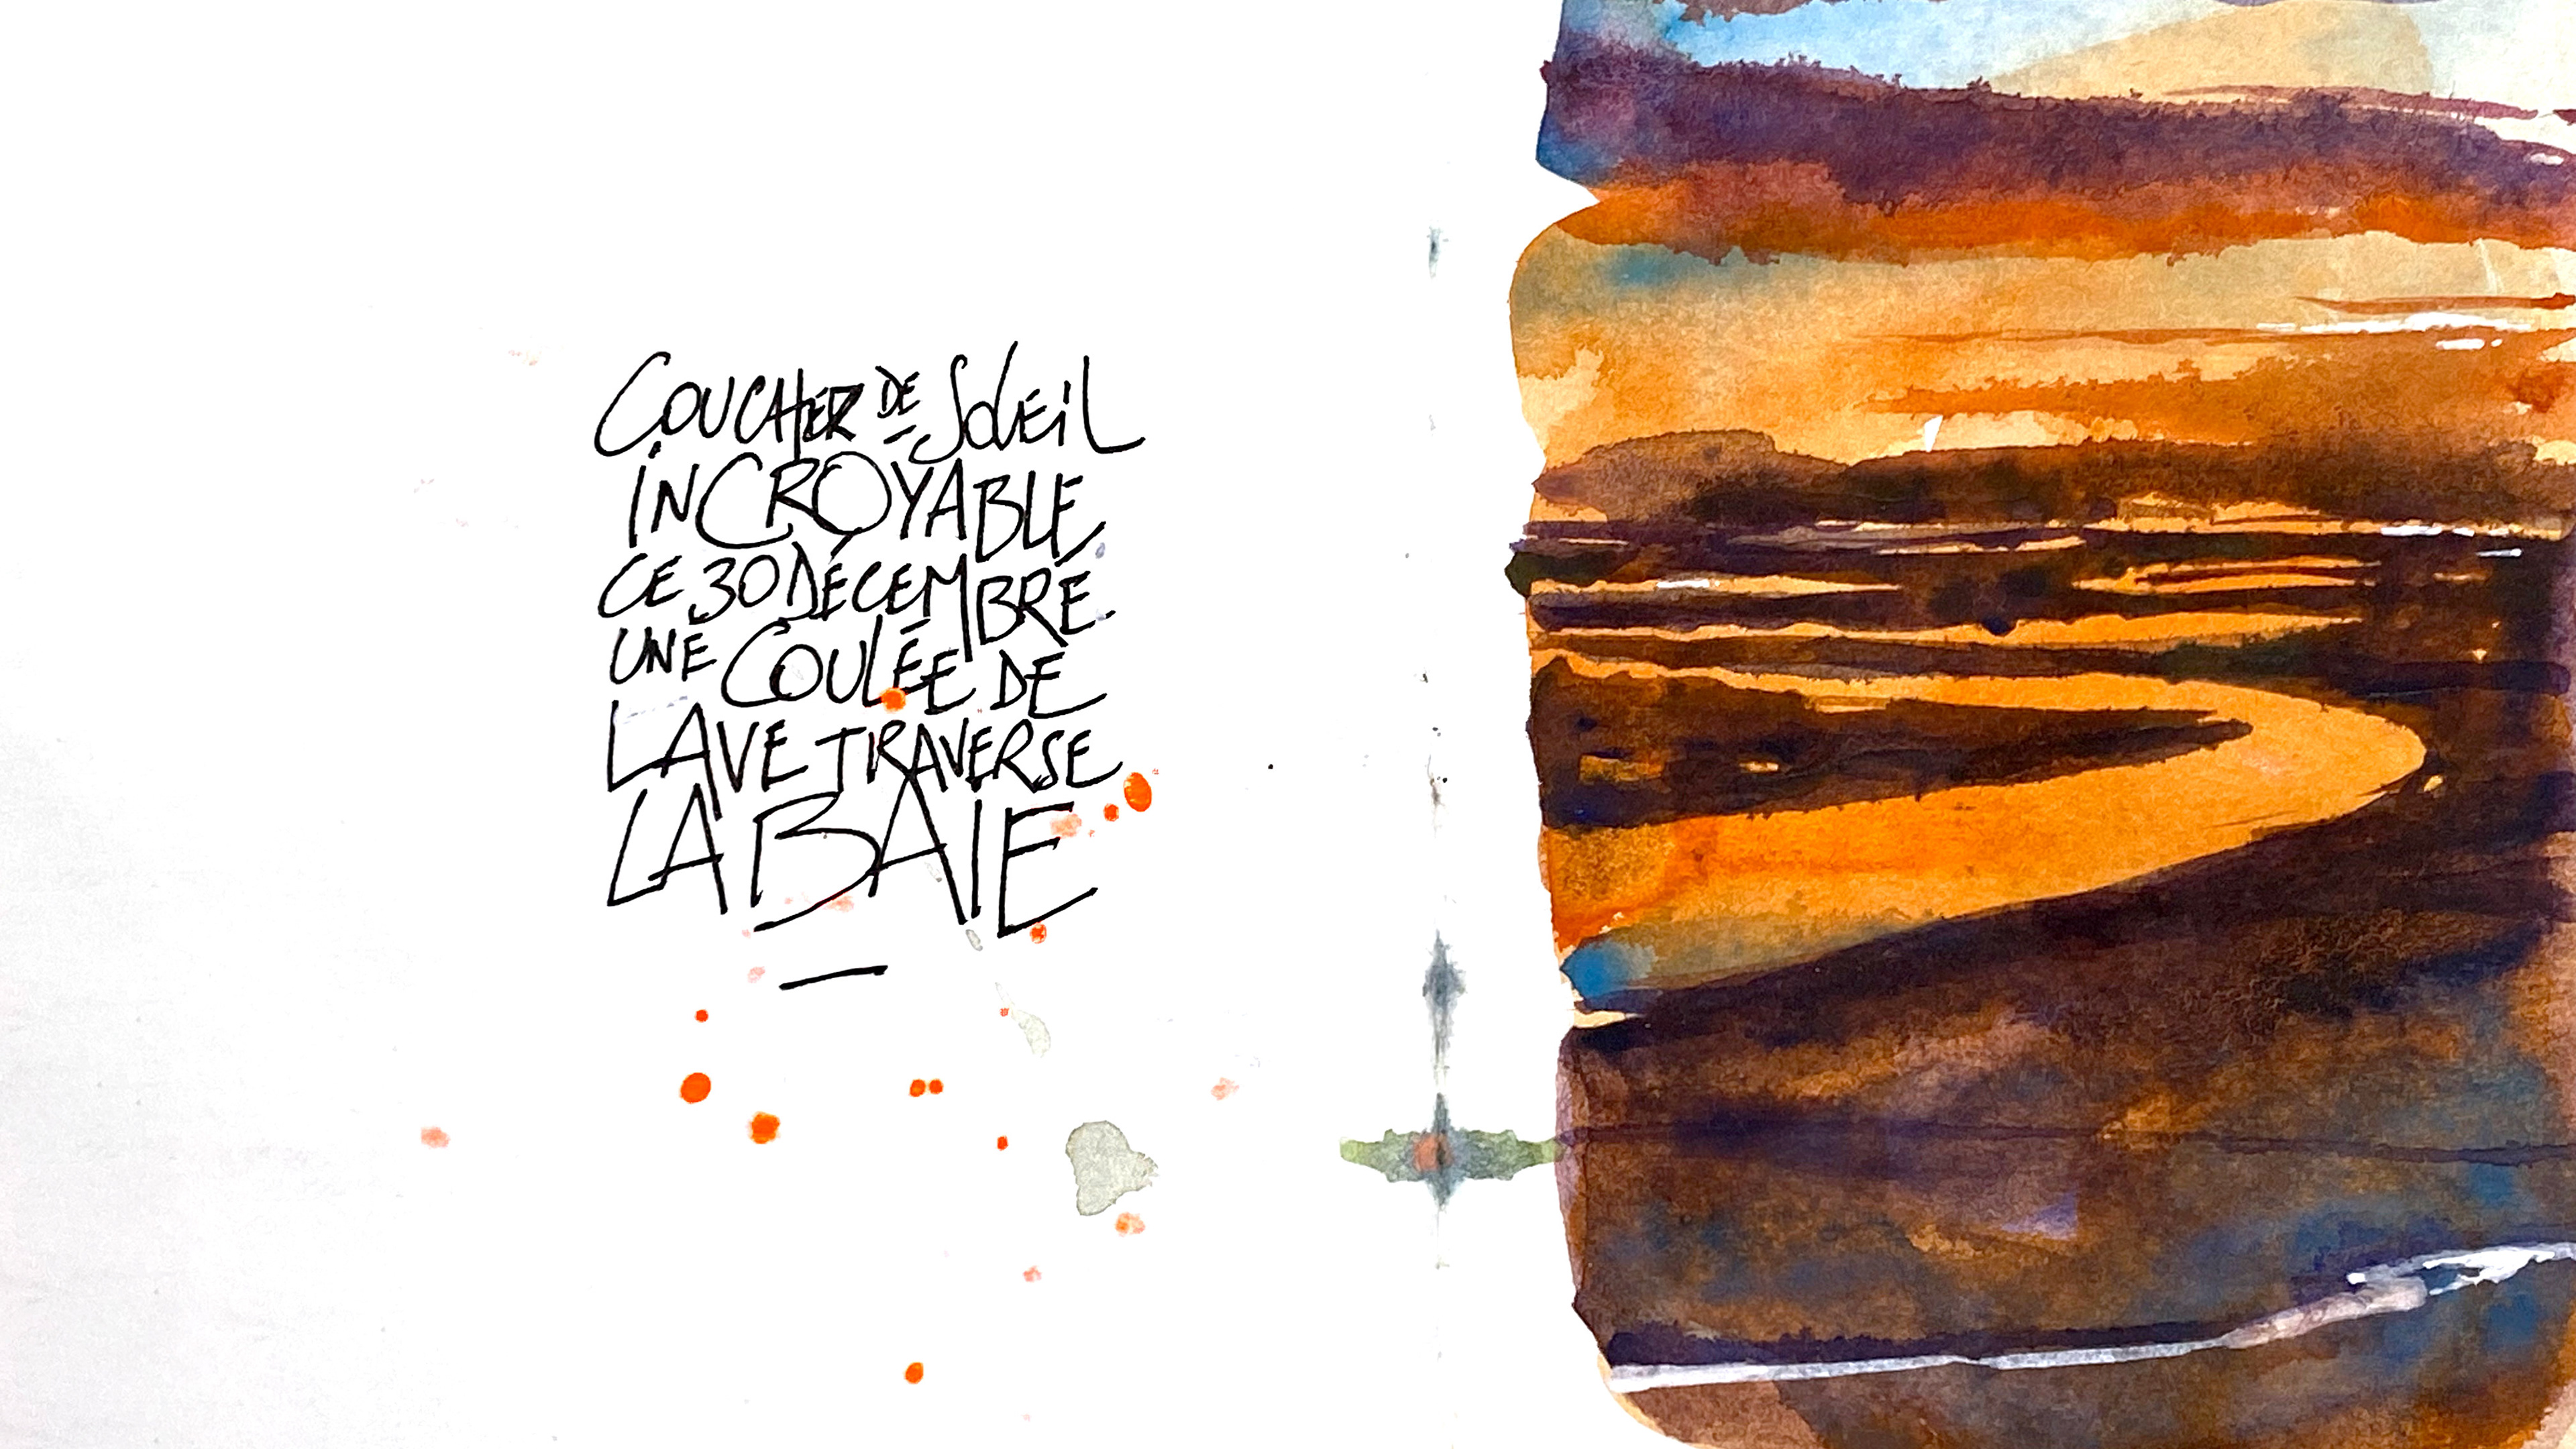 COUCHER DE SOLEIL
INCROYABLE
CE 30 DÉCEMBRE.
UNE COULÉE DE
LAVE TRAVERSE
LA BAIE